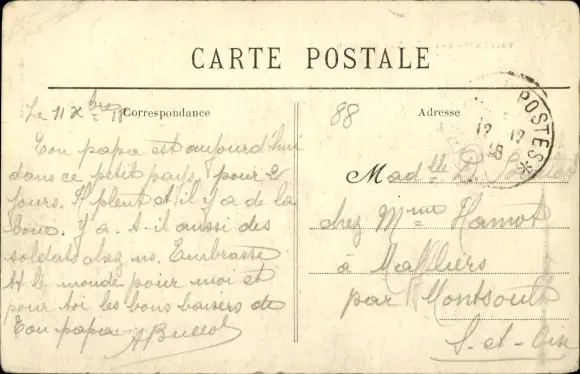 CARTE POSTALE
Correspondance
Adresse
Le 11 Xbre 18
88
POSTES
12 12
18
Ton papa est aujourd'hui
dans ce petit pays, pour 2
jours. Il pleut et il y a de la
boue. Y a-t-il aussi des
soldats chez ns. Embrasse
tt le monde pour moi et
pour toi les bons baisers de
Ton papa
Madlle D.
chez Mme Hamot
à Maffliers
par Montsoult
S.-et-Oise